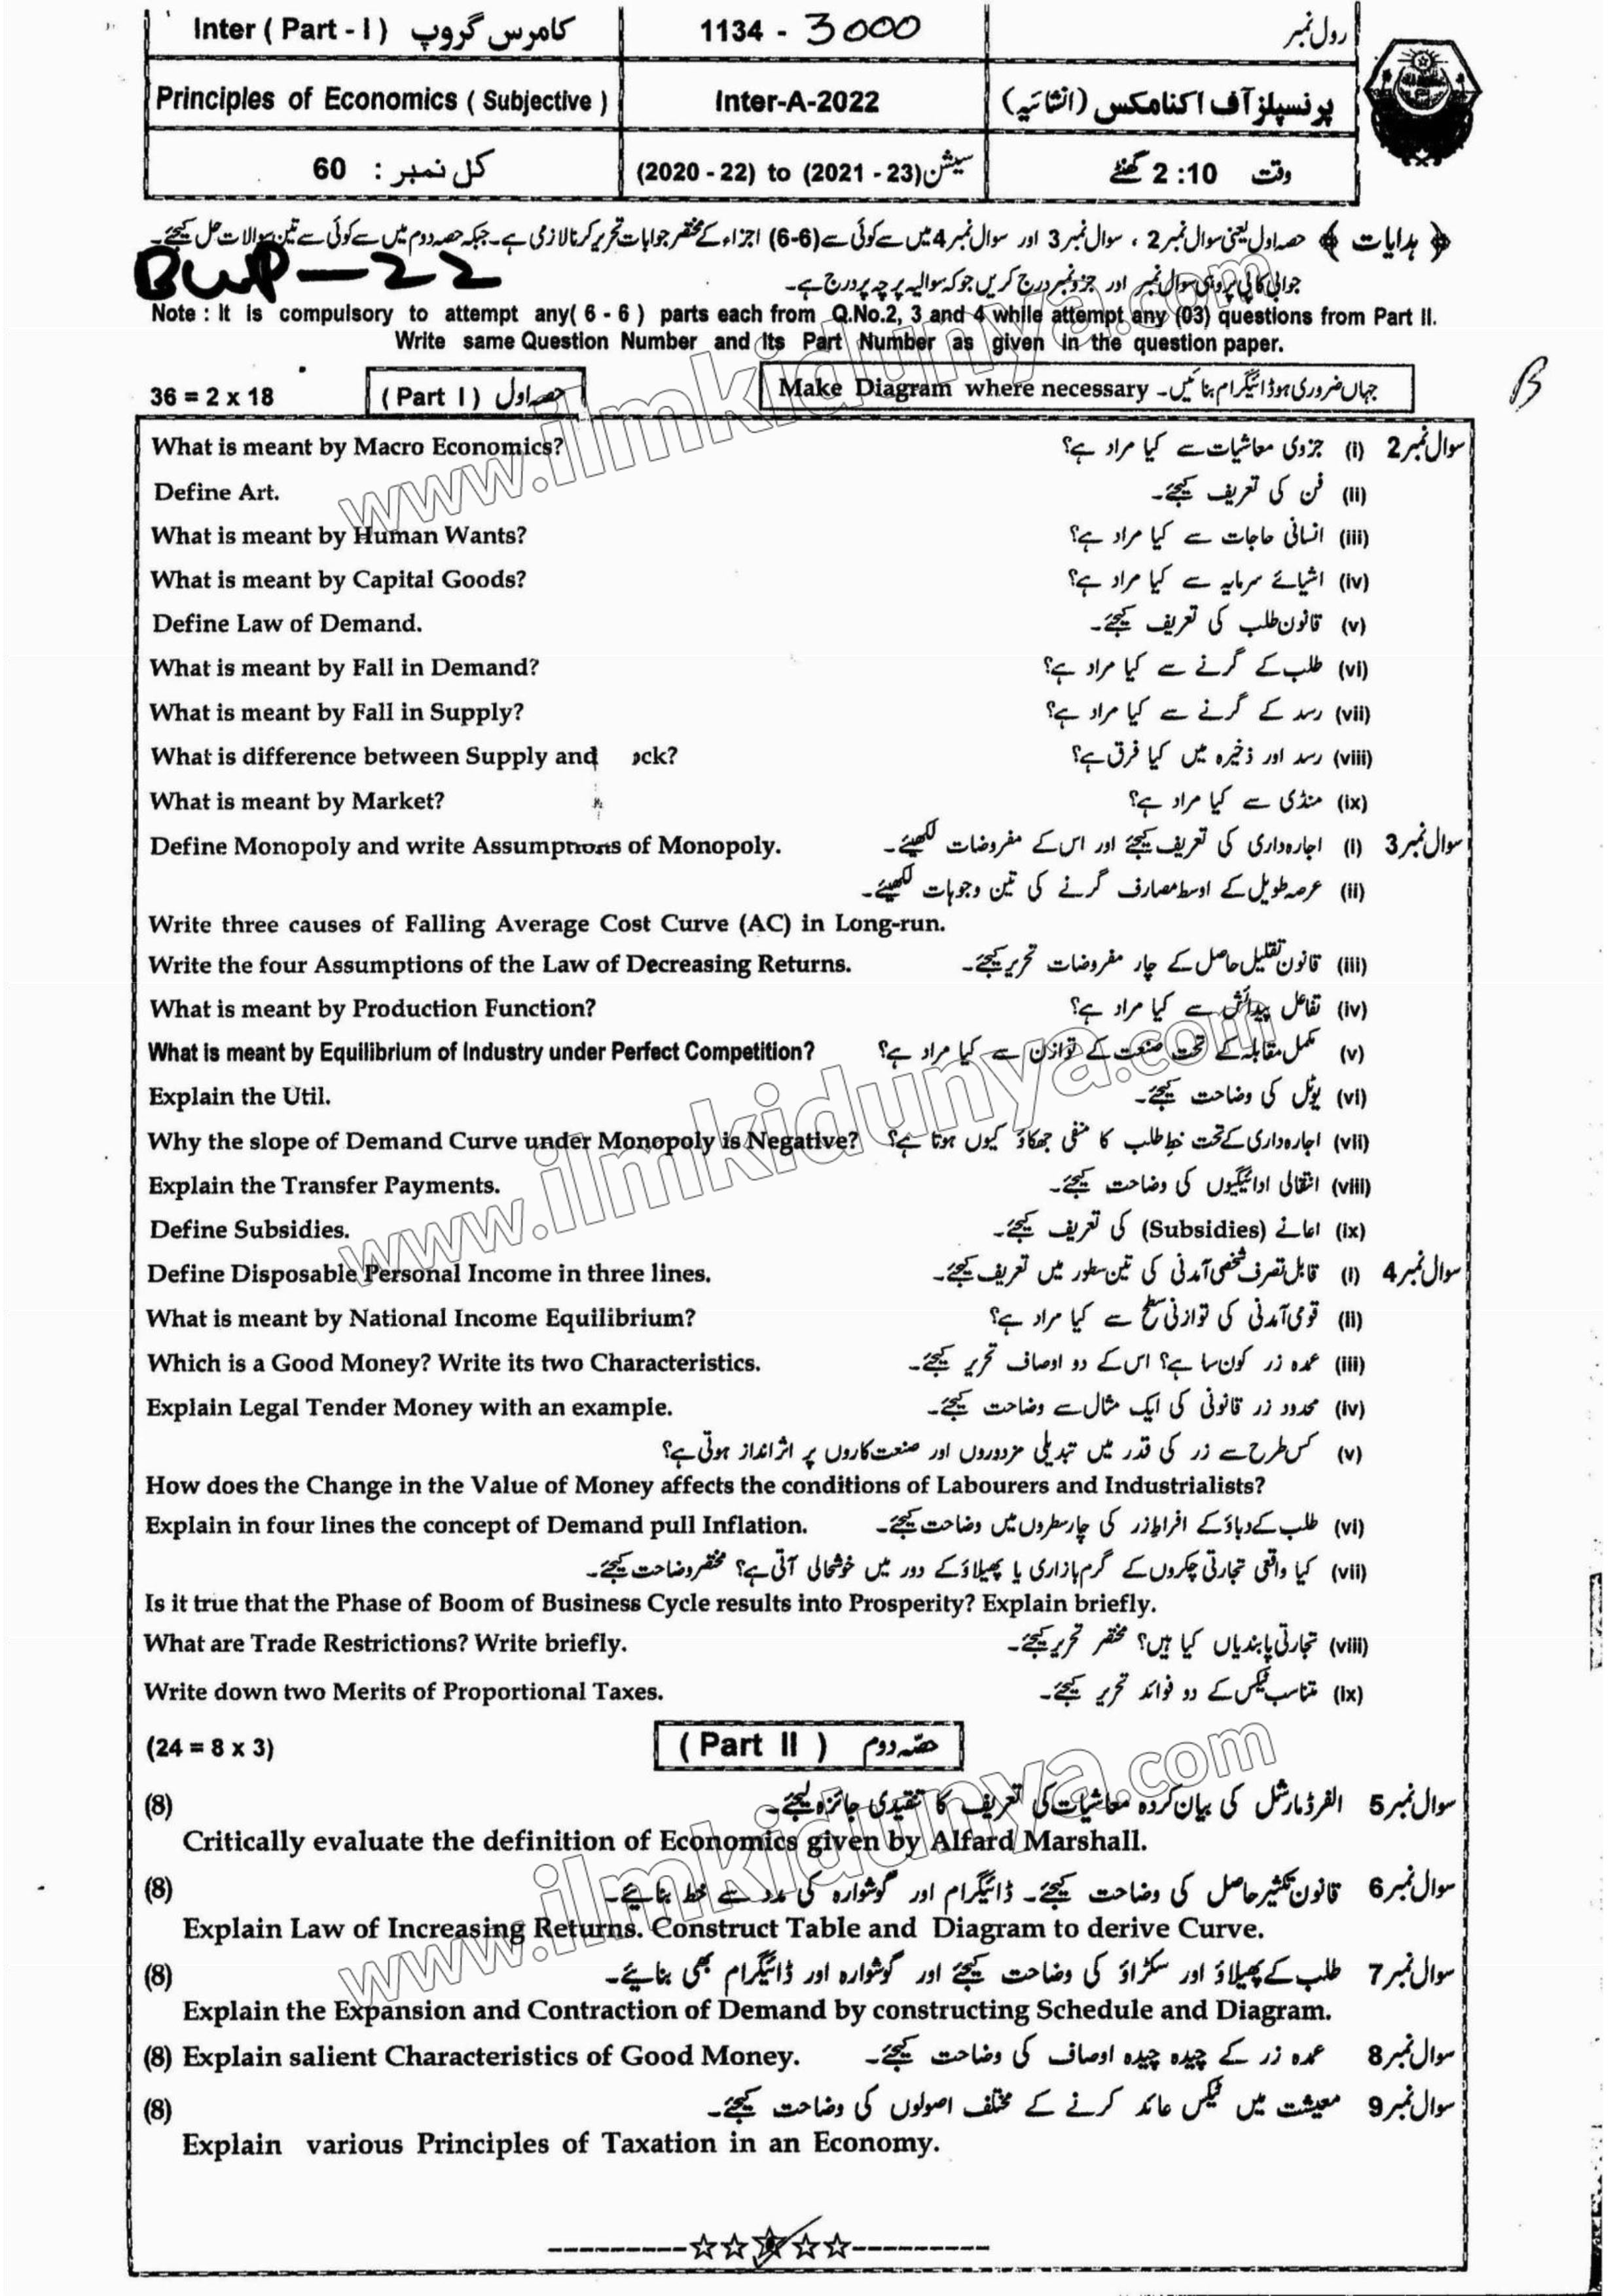 Inter ( Part - I ) کامرس گروپ 1134 - 3000 رول نمبر
Principles of Economics ( Subjective ) Inter-A-2022 پرنسپلز آف اکنامکس (انشائیہ)
کل نمبر : 60 سیشن (2020 - 22) to (2021 - 23) وقت 2:10 گھنٹے
﴿ ہدایات ﴾ حصہ اول یعنی سوال نمبر 2 ، سوال نمبر 3 اور سوال نمبر 4 میں سے کوئی سے (6-6) اجزاء کے مختصر جوابات تحریر کرنا لازمی ہے۔ جبکہ حصہ دوم میں سے کوئی سے تین سوالات حل کیجئے۔
BWP-22 جوابی کاپی پر وہی سوال نمبر اور جزو نمبر درج کریں جو کہ سوالیہ پرچہ پر درج ہے۔
Note : It is compulsory to attempt any( 6 - 6 ) parts each from Q.No.2, 3 and 4 while attempt any (03) questions from Part II.
Write same Question Number and Its Part Number as given in the question paper.
36 = 2 x 18 ( Part I ) حصہ اول Make Diagram where necessary ۔ جہاں ضروری ہو ڈائیگرام بنائیں
B
What is meant by Macro Economics? سوال نمبر 2 (i) جزوی معاشیات سے کیا مراد ہے؟
Define Art. (ii) فن کی تعریف کیجئے۔
What is meant by Human Wants? (iii) انسانی حاجات سے کیا مراد ہے؟
What is meant by Capital Goods? (iv) اشیائے سرمایہ سے کیا مراد ہے؟
Define Law of Demand. (v) قانون طلب کی تعریف کیجئے۔
What is meant by Fall in Demand? (vi) طلب کے گرنے سے کیا مراد ہے؟
What is meant by Fall in Supply? (vii) رسد کے گرنے سے کیا مراد ہے؟
What is difference between Supply and ock? (viii) رسد اور ذخیرہ میں کیا فرق ہے؟
What is meant by Market? (ix) منڈی سے کیا مراد ہے؟
Define Monopoly and write Assumptions of Monopoly. سوال نمبر 3 (i) اجارہ داری کی تعریف کیجئے اور اس کے مفروضات لکھیئے۔
(ii) عرصہ طویل کے اوسط مصارف گرنے کی تین وجوہات لکھیئے۔
Write three causes of Falling Average Cost Curve (AC) in Long-run.
Write the four Assumptions of the Law of Decreasing Returns. (iii) قانون تقلیل حاصل کے چار مفروضات تحریر کیجئے۔
What is meant by Production Function? (iv) تفاعل پیدائش سے کیا مراد ہے؟
What is meant by Equilibrium of Industry under Perfect Competition? (v) مکمل مقابلہ کے تحت صنعت کے توازن سے کیا مراد ہے؟
Explain the Util. (vi) یوٹل کی وضاحت کیجئے۔
Why the slope of Demand Curve under Monopoly is Negative? (vii) اجارہ داری کے تحت خطِ طلب کا منفی جھکاؤ کیوں ہوتا ہے؟
Explain the Transfer Payments. (viii) انتقالی ادائیگیوں کی وضاحت کیجئے۔
Define Subsidies. (ix) اعانے (Subsidies) کی تعریف کیجئے۔
Define Disposable Personal Income in three lines. سوال نمبر 4 (i) قابل تصرف شخصی آمدنی کی تین سطور میں تعریف کیجئے۔
What is meant by National Income Equilibrium? (ii) قومی آمدنی کی توازنی سطح سے کیا مراد ہے؟
Which is a Good Money? Write its two Characteristics. (iii) عمدہ زر کون سا ہے؟ اس کے دو اوصاف تحریر کیجئے۔
Explain Legal Tender Money with an example. (iv) محدود زر قانونی کی ایک مثال سے وضاحت کیجئے۔
(v) کس طرح سے زر کی قدر میں تبدیلی مزدوروں اور صنعت کاروں پر اثر انداز ہوتی ہے؟
How does the Change in the Value of Money affects the conditions of Labourers and Industrialists?
Explain in four lines the concept of Demand pull Inflation. (vi) طلب کے دباؤ کے افراطِ زر کی چار سطروں میں وضاحت کیجئے۔
(vii) کیا واقعی تجارتی چکروں کے گرم بازاری یا پھیلاؤ کے دور میں خوشحالی آتی ہے؟ مختصر وضاحت کیجئے۔
Is it true that the Phase of Boom of Business Cycle results into Prosperity? Explain briefly.
What are Trade Restrictions? Write briefly. (viii) تجارتی پابندیاں کیا ہیں؟ مختصر تحریر کیجئے۔
Write down two Merits of Proportional Taxes. (ix) متناسب ٹیکس کے دو فوائد تحریر کیجئے۔
(24 = 8 x 3) ( Part II ) حصہ دوم
(8) سوال نمبر 5 الفرڈ مارشل کی بیان کردہ معاشیات کی تعریف کا تنقیدی جائزہ لیجئے۔
Critically evaluate the definition of Economics given by Alfard Marshall.
(8) سوال نمبر 6 قانون تکثیر حاصل کی وضاحت کیجئے۔ ڈائیگرام اور گوشوارہ کی مدد سے خط بنائیے۔
Explain Law of Increasing Returns. Construct Table and Diagram to derive Curve.
(8) سوال نمبر 7 طلب کے پھیلاؤ اور سکڑاؤ کی وضاحت کیجئے اور گوشوارہ اور ڈائیگرام بھی بنائیے۔
Explain the Expansion and Contraction of Demand by constructing Schedule and Diagram.
(8) Explain salient Characteristics of Good Money. سوال نمبر 8 عمدہ زر کے چیدہ چیدہ اوصاف کی وضاحت کیجئے۔
(8) سوال نمبر 9 معیشت میں ٹیکس عائد کرنے کے مختلف اصولوں کی وضاحت کیجئے۔
Explain various Principles of Taxation in an Economy.
www.ilmkidunya.com
www.ilmkidunya.com
www.ilmkidunya.com